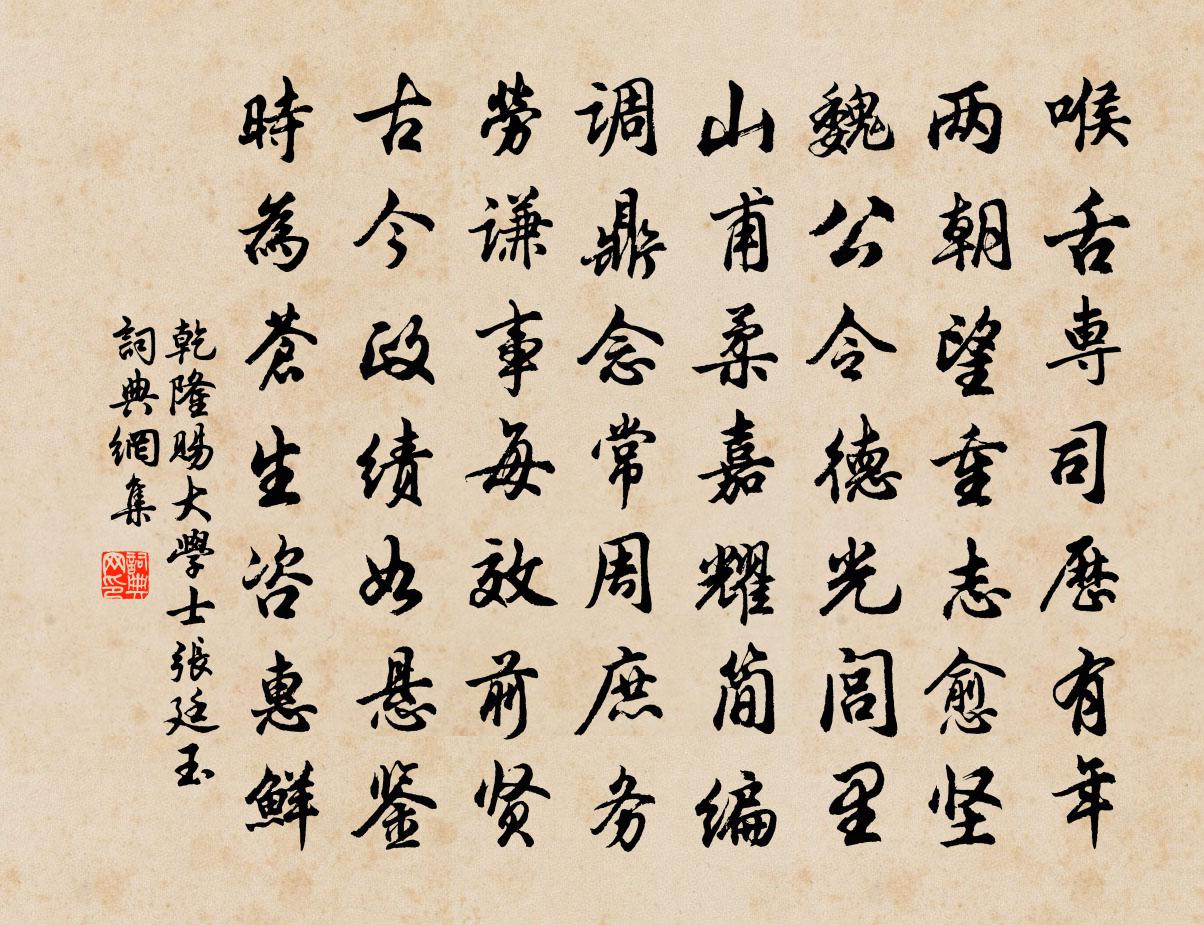 喉舌専司歷有年
两朝望重志愈坚
魏公令德光闾里
山甫柔嘉耀简编
调鼎念常周庶务
劳谦事每效前贤
古今政绩如悬鉴
時為蒼生咨惠鮮
乾隆賜大學士張廷玉
詞典網集
詞典网印